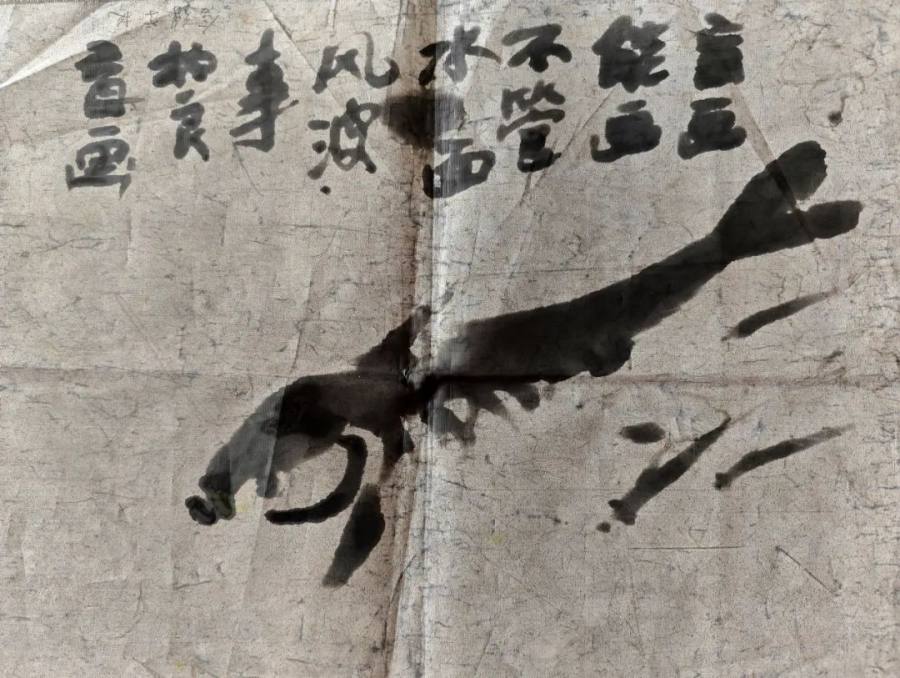 盲画
能画
不管
水面
风波
事
良
盲画